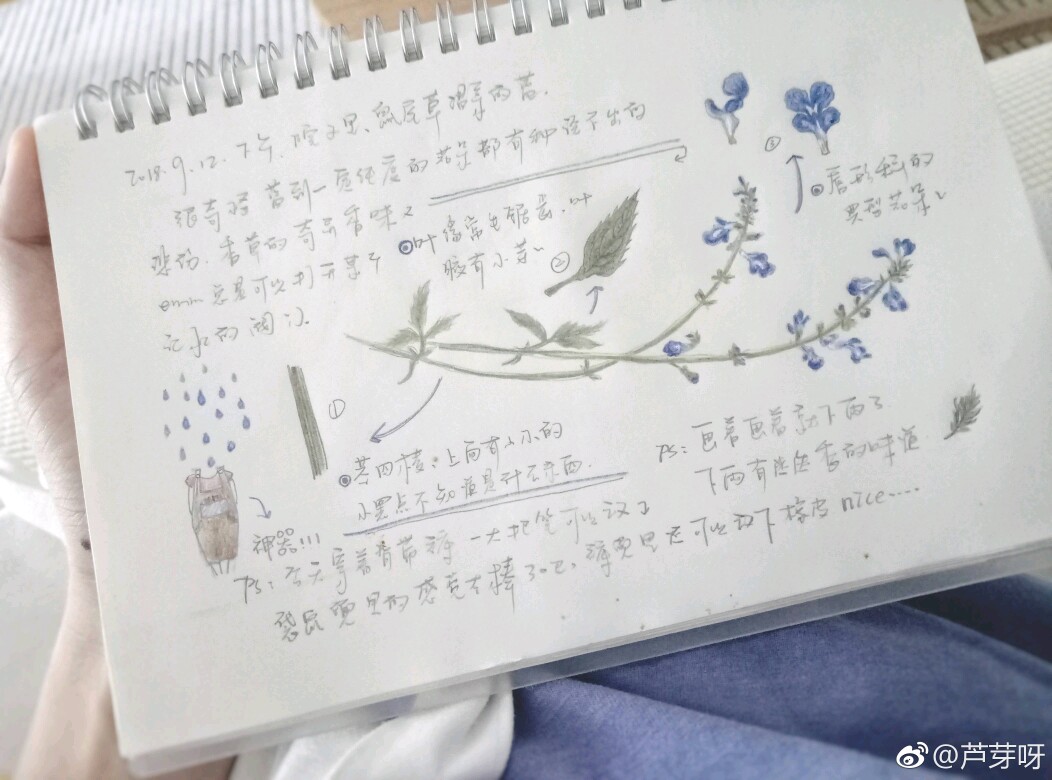 2018.9.12. 下午. 院子里、鼠尾草
很奇怪 蓝到一定纯度的花朵都有种说不出的
悲伤. 香草的奇异香味
emm 总是可以打开某个
记忆的阀门.
叶缘常是锯齿. 叶
脉有小芽~
②
③
唇形科的
典型花朵~
①
茎四棱. 上面有小小的
小黑点不知道是什么东西.
神器!!!
PS: 画着画着就下雨了
下雨有淡淡香的味道
PS: 今天穿着背带裤 一大把笔可以放
口袋里的感觉太棒了吧. 裤兜里还可以放下橡皮 nice....
@芦芽呀